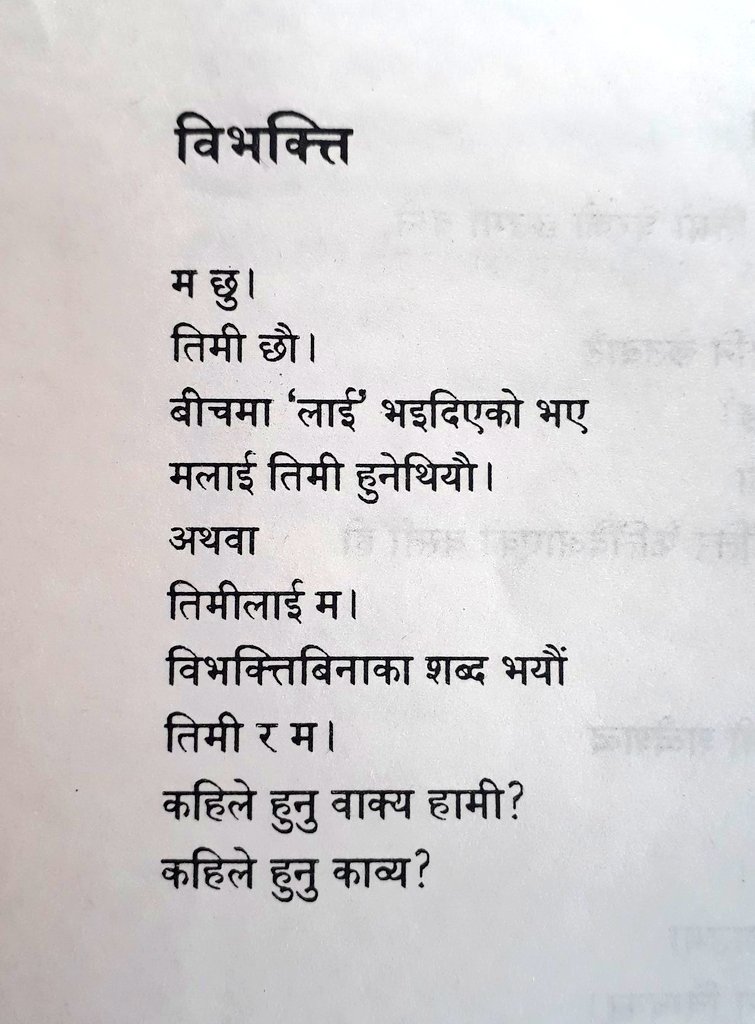 विभक्ति
म छु।
तिमी छौ।
बीचमा ‘लाई’ भइदिएको भए
मलाई तिमी हुनेथियौ।
अथवा
तिमीलाई म।
विभक्तिबिनाका शब्द भयौं
तिमी र म।
कहिले हुनु वाक्य हामी?
कहिले हुनु काव्य?